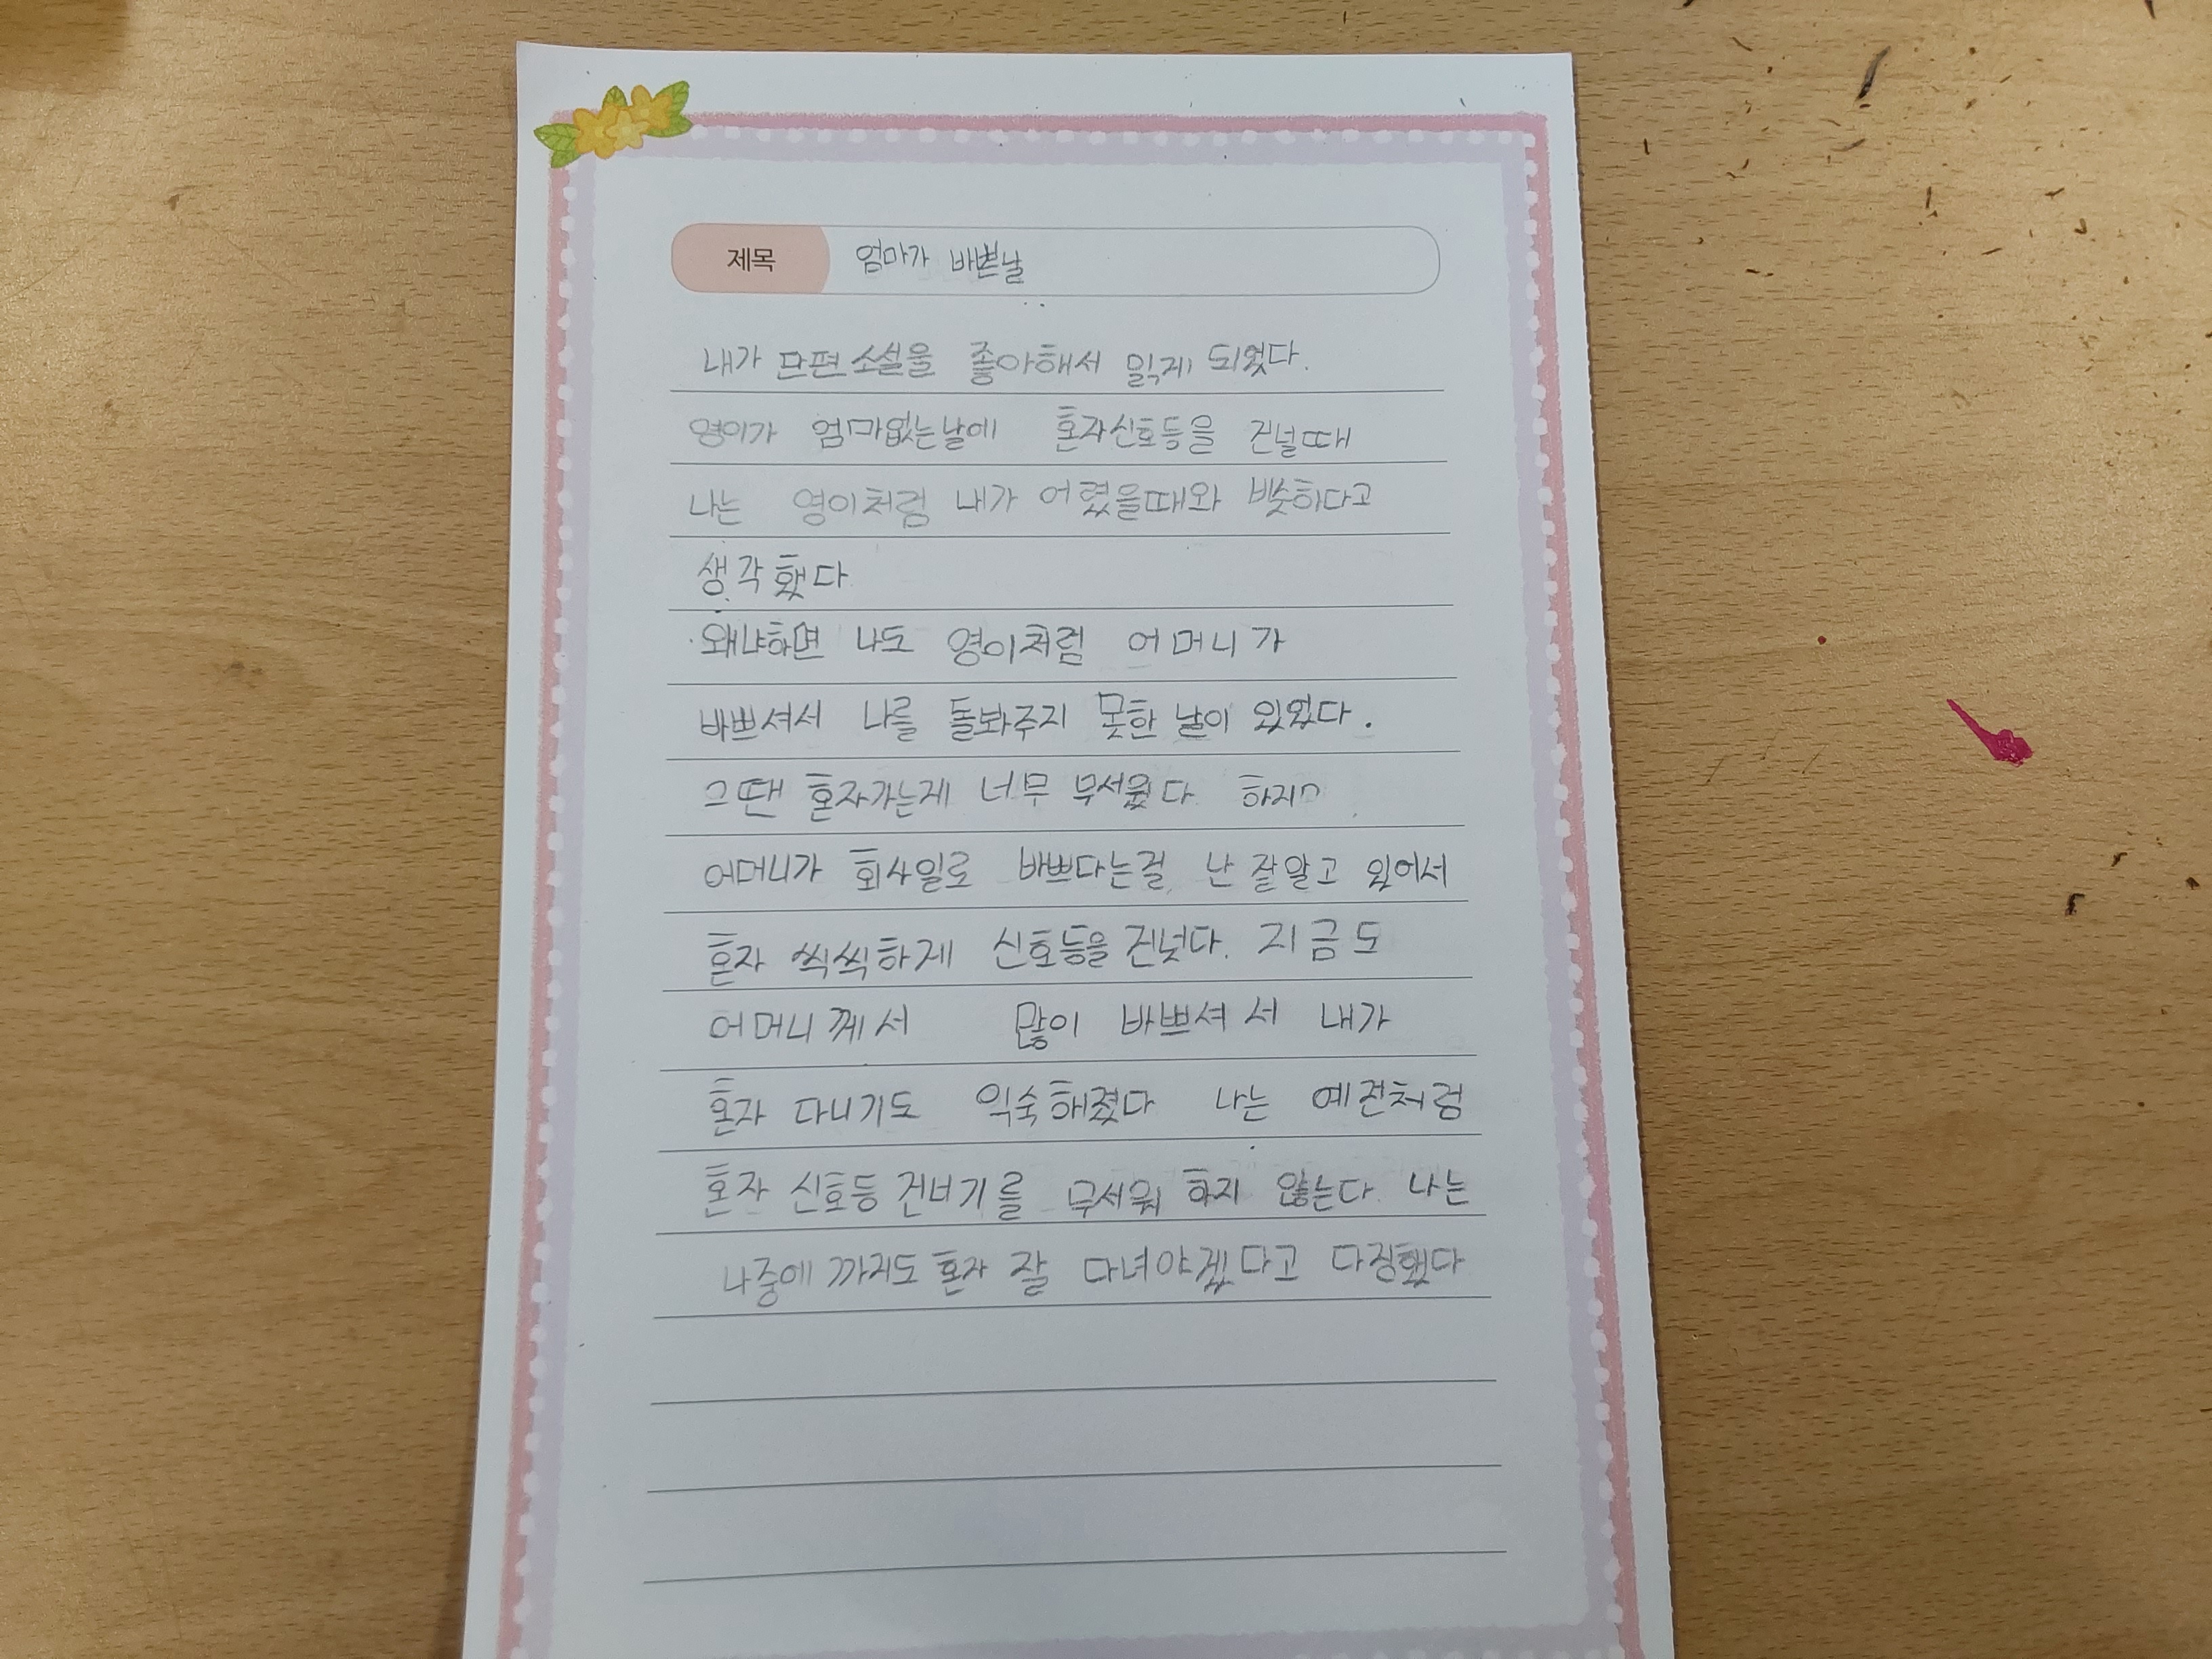 제목 엄마가 바쁜날
내가 단편소설을 좋아해서 읽게 되었다.
영이가 엄마없는날에 혼자신호등을 건널때
나는 영이처럼 내가 어렸을때와 비슷하다고
생각했다
왜냐하면 나도 영이처럼 어머니가
바쁘셔서 나를 돌봐주지 못한 날이 있었다.
그땐 혼자가는게 너무 무서웠다 하지
어머니가 회사일로 바쁘다는걸 난 잘알고 있어서
혼자 씩씩하게 신호등을 건넜다. 지금도
어머니께서 많이 바쁘셔서 내가
혼자 다니기도 익숙해졌다 나는 예전처럼
혼자 신호등 건너기를 무서워 하지 않는다 나는
나중에 까지도 혼자 잘 다녀야겠다고 다짐했다